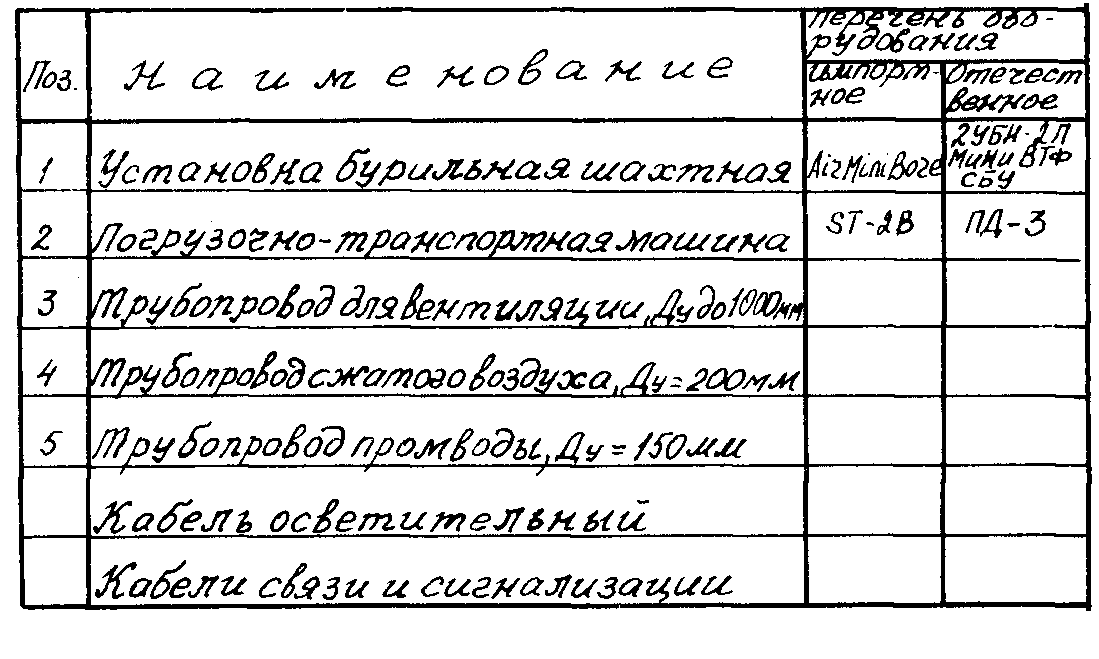 Перечень обо-
рудования
Поз.
Наименование
импорт-
ное
Отечест
венное
1
Установка бурильная шахтная
AirMiniBore
2УБН-2П
Мини ВТФ
СБУ
2
Погрузочно-транспортная машина
ST-2B
ПД-3
3
Трубопровод для вентиляции, Ду до 1000мм
4
Трубопровод сжатого воздуха, Ду=200мм
5
Трубопровод промводы, Ду=150мм
Кабель осветительный
Кабели связи и сигнализации